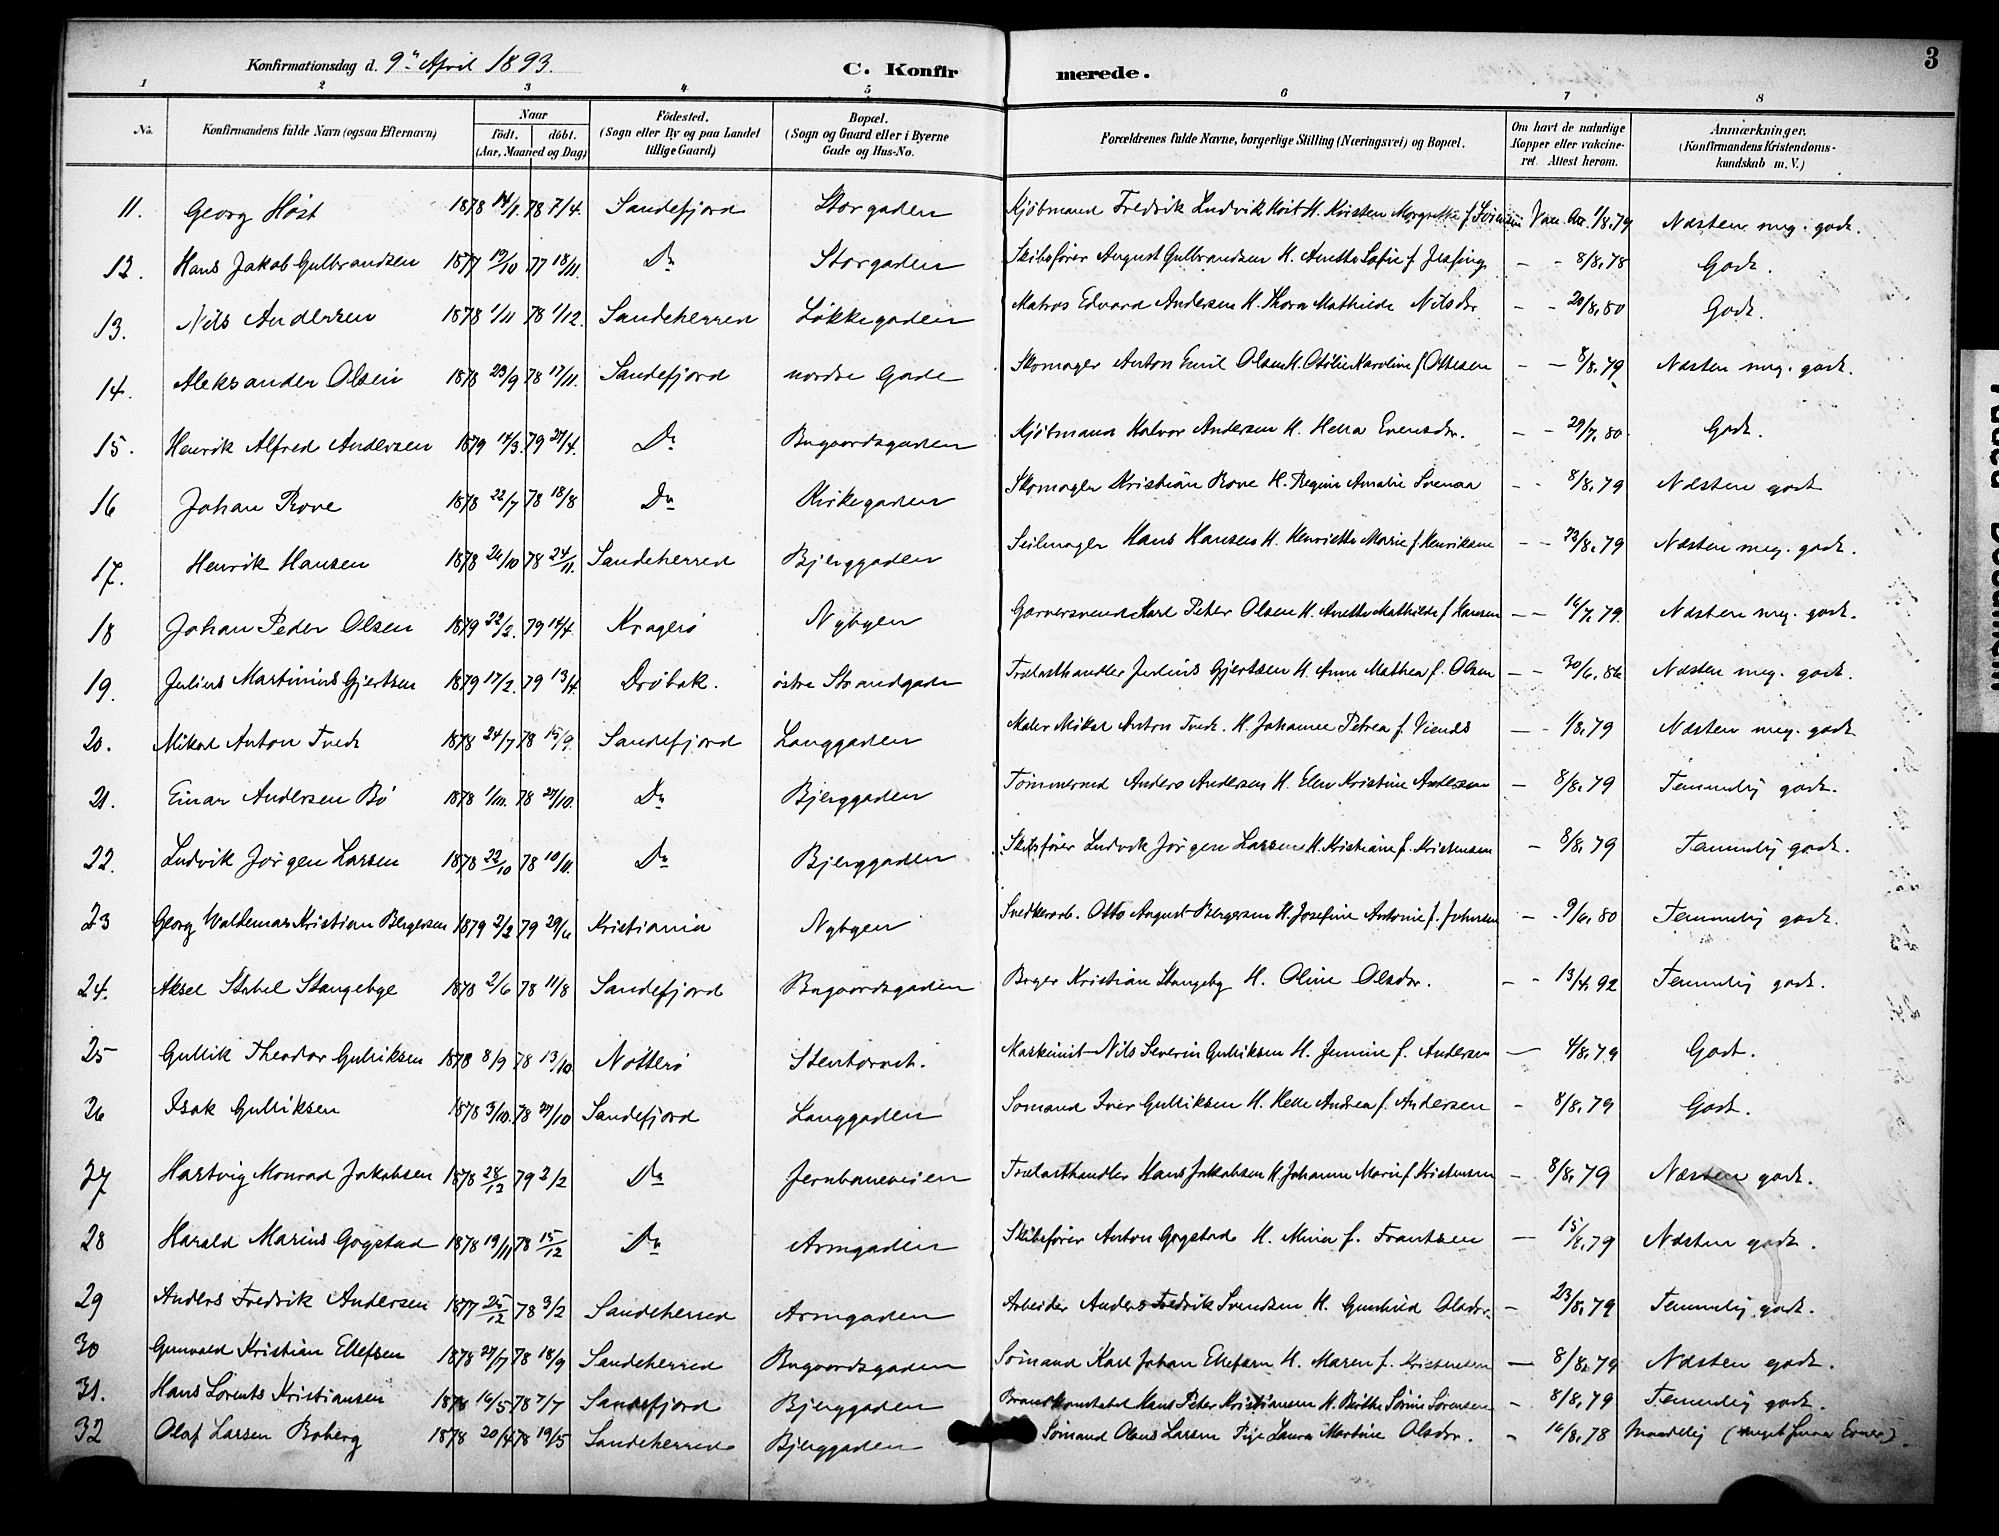 Konfirmationsdag d. 9de April 1893.
C. Konfir merede.
3
1 2 3 4 5 6 7 8
No. Konfirmandens fulde Navn (ogsaa Efternavn) Naar født. døbt. (Aar, Maaned og Dag) Fødested. (Sogn eller By og paa Landet tillige Gaard) Bopæl. (Sogn og Gaard eller i Byerne Gade og Hus-No. Forældrenes fulde Navne, borgerlige Stilling (Næringsvei) og Bopæl. Om havt de naturlige Kopper eller vakcineret. Attest herom. Anmærkninger. (Konfirmandens Kristendomskundskab m. V.)
11. Georg Høst 1878 14/1. 78 7/4. Sandefjord Storgaden Kjøbmand Fredrik Ludvik Høst H. Kirsten Margrethe f Sørensen 1/8.79 Næsten meg. godt.
12. Hans Jakob Gulbrandsen 1877 19/10 77 18/11. Do Storgaden Skibsfører August Gulbrandsen H. Anette Sofie f. - - 8/8.78 Godt.
13. Nils Andersen 1878 1/11 78 1/12. Sandeherred Løkkegaden Matros Edvard Andersen H. Thora Mathilde Nilsdr - - 20/8.80 Godt.
14. Aleksander Olsen 1878 23/9 78 17/11. Sandefjord nordre Gade Skomager Anton Emil Olsen H. Otilie Karoline f Ottesen - - 8/8.79 Næsten meg. godt.
15. Henrik Alfred Andersen 1879 14/3. 79 27/4. Do Bugaardsgaden Kjøbmand Halvor Andersen H. Helena Evensdr. - - 29/7.80 Godt.
16 Johan Rove 1878 22/7 78 18/8 Do Kirkegaden Skomager Kristian Rove H. Regine Amalie - - 8/8.79 Næsten godt
17. Henrik Hansen 1878 26/10 78 24/11. Sandeherred Bjerggaden Seilmager Hans Hansen H. Henriette Marie f. Henriksen - - /8.79 Næsten meg. godt.
18 Johan Peder Olsen 1879 22/2. 79 14/4. Kragerø Nybyen Garversvend Karl Peter Olsen H. Anette Mathilde f Hansen - - 16/7.79. Næsten meg. godt.
19. Julius Martinius Gjertsen 1879 17/2. 79 13/4 Drøbak. østre Strandgade Trælasthandler Julius Gjertsen H. Anne Mathea f. Olsen - - 30/6.86 Næsten meg. godt.
20. Mikal Anton Tvedt 1878 24/7 78 15/9. Sandefjord Langgaden Maler Mikal Anton Tvedt. H. Johanne Petrea f. - - 1/8.79 Næsten meg. godt
21. Einar Andersen Bø 1878 1/10. 78 27/10. Do Bjerggaden Tømmermd Anders Andersen H. Elen Kristine Andersen - 8/8.79 Temmelig godt.
22. Ludvik Jørgen Larsen 1878 22/10 78 10/11. Do Bjerggaden Skibsfører Ludvik Jørgen Larsen H. Kristiane f. Kristensen - 8/8.79 Temmelig godt.
23 Georg Waldemar Kristian Bergersen 1879 2/2 79 29/6 Kristiania Nybyen Snedkerarb. Otto August Bergersen H. Josefine Antonie f. Johnsen - - 9/6.80 Temmelig godt.
24. Aksel Stabel Stangebye 1878 2/6 78 11/8 Sandefjord Bugaardsgaden Bager Kristian Stangeby H. Oline Olsdr. - - 13/4.92 Temmelig godt.
25 Gullik Theodor Gulliksen 1878 8/9 78 13/10 Nøtterø Stentorvet. Maskinist Nils Severin Gulliksen H. Jennine f. Andersen - 4/8.79 Godt.
26 Isak Gulliksen 1878 3/10. 78 27/10 Sandefjord Langgaden Sømand Iver Gulliksen H. Helle Andrea f. Andersen - 8/8.79 Godt.
27 Hartvig Monrad Jakobsen 1878 28/12 79 2/2 Do Jernbaneveien Trælasthandler Hans Jakobsen H. Johanne Marie f Kristensen - 8/8.79 Næsten godt.
28 Harald Marius Gogstad 1878 19/11 78 15/12 Do Armgaden Skibsfører Anton Gogstad H. Mina f. Frantsen - 15/8.79 Næsten godt.
29 Anders Fredrik Andersen 1877 25/12 78 3/2 Sandeherred Armgaden Arbeider Anders Fredrik Svendsen H. Gunhild Olsdr. - 23/8.79 Temmelig godt.
30 Gunvald Kristian Ellefsen 1878 27/7 78 18/9 Sandeherred Bugaardsgaden Sømand Karl Johan Ellefsen H. Maren f. Kristensen - 8/8.79 Næsten godt.
31. Hans Lorents Kristiansen 1878 16/5 78 7/7 Sandefjord Bjerggaden Brandkonstabel Hans Peter Kristiansen H. Birthe Sørine Sørensen - 8/8.79 Temmelig godt.
32 Olaf Larsen Boberg 1878 20/4 78 19/5 Sandeherred Bjerggaden Sømand Olaus Larsen Pige Laura Martine Olsdr. - 16/8.78 Maadelig (meget Evner).